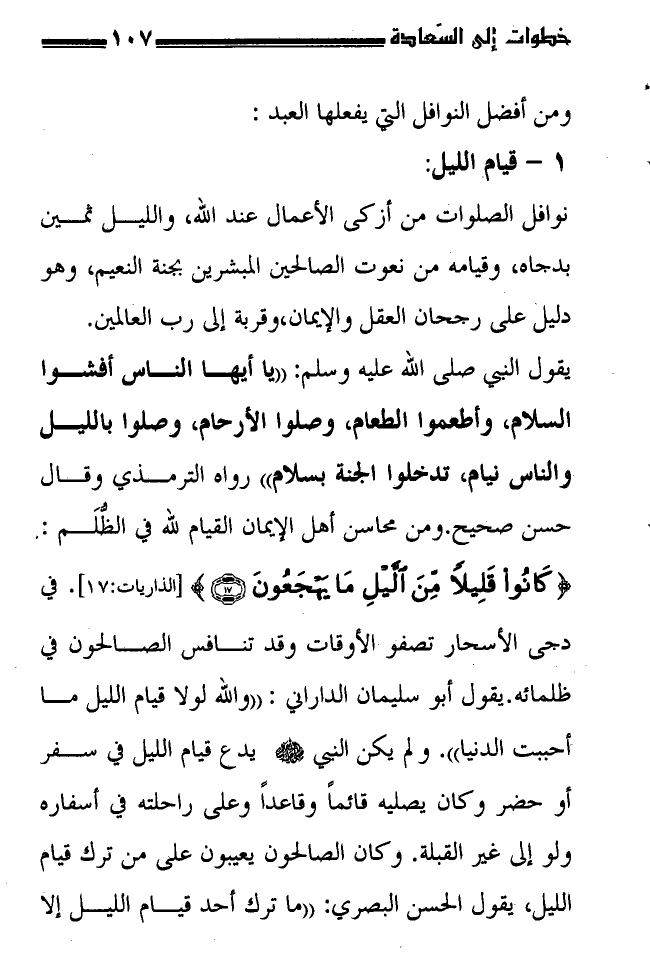 خطوات إلى السّعادة ١٠٧
ومن أفضل النوافل التي يفعلها العبد :
١ - قيام الليل:
نوافل الصلوات من أزكى الأعمال عند الله، والليل ثمين
بدجاه، وقيامه من نعوت الصالحين المبشرين بجنة النعيم، وهو
دليل على رجحان العقل والإيمان،وقربة إلى رب العالمين.
يقول النبي صلى الله عليه وسلم: ((يا أيها الناس أفشوا
السلام، وأطعموا الطعام، وصلوا الأرحام، وصلوا بالليل
والناس نيام، تدخلوا الجنة بسلام)) رواه الترمذي وقال
حسن صحيح.ومن محاسن أهل الإيمان القيام لله في الظُّلَم :
﴿كَانُوا۟ قَلِيلًا مِّنَ ٱلَّيْلِ مَا يَهْجَعُونَ ۝١٧﴾ [الذاريات:١٧]. في
دجى الأسحار تصفو الأوقات وقد تنافس الصالحون في
ظلمائه.يقول أبو سليمان الداراني : ((والله لولا قيام الليل ما
أحببت الدنيا)). ولم يكن النبي ﷺ يدع قيام الليل في سفر
أو حضر وكان يصليه قائماً وقاعداً وعلى راحلته في أسفاره
ولو إلى غير القبلة. وكان الصالحون يعيبون على من ترك قيام
الليل، يقول الحسن البصري: ((ما ترك أحد قيام الليل إلا